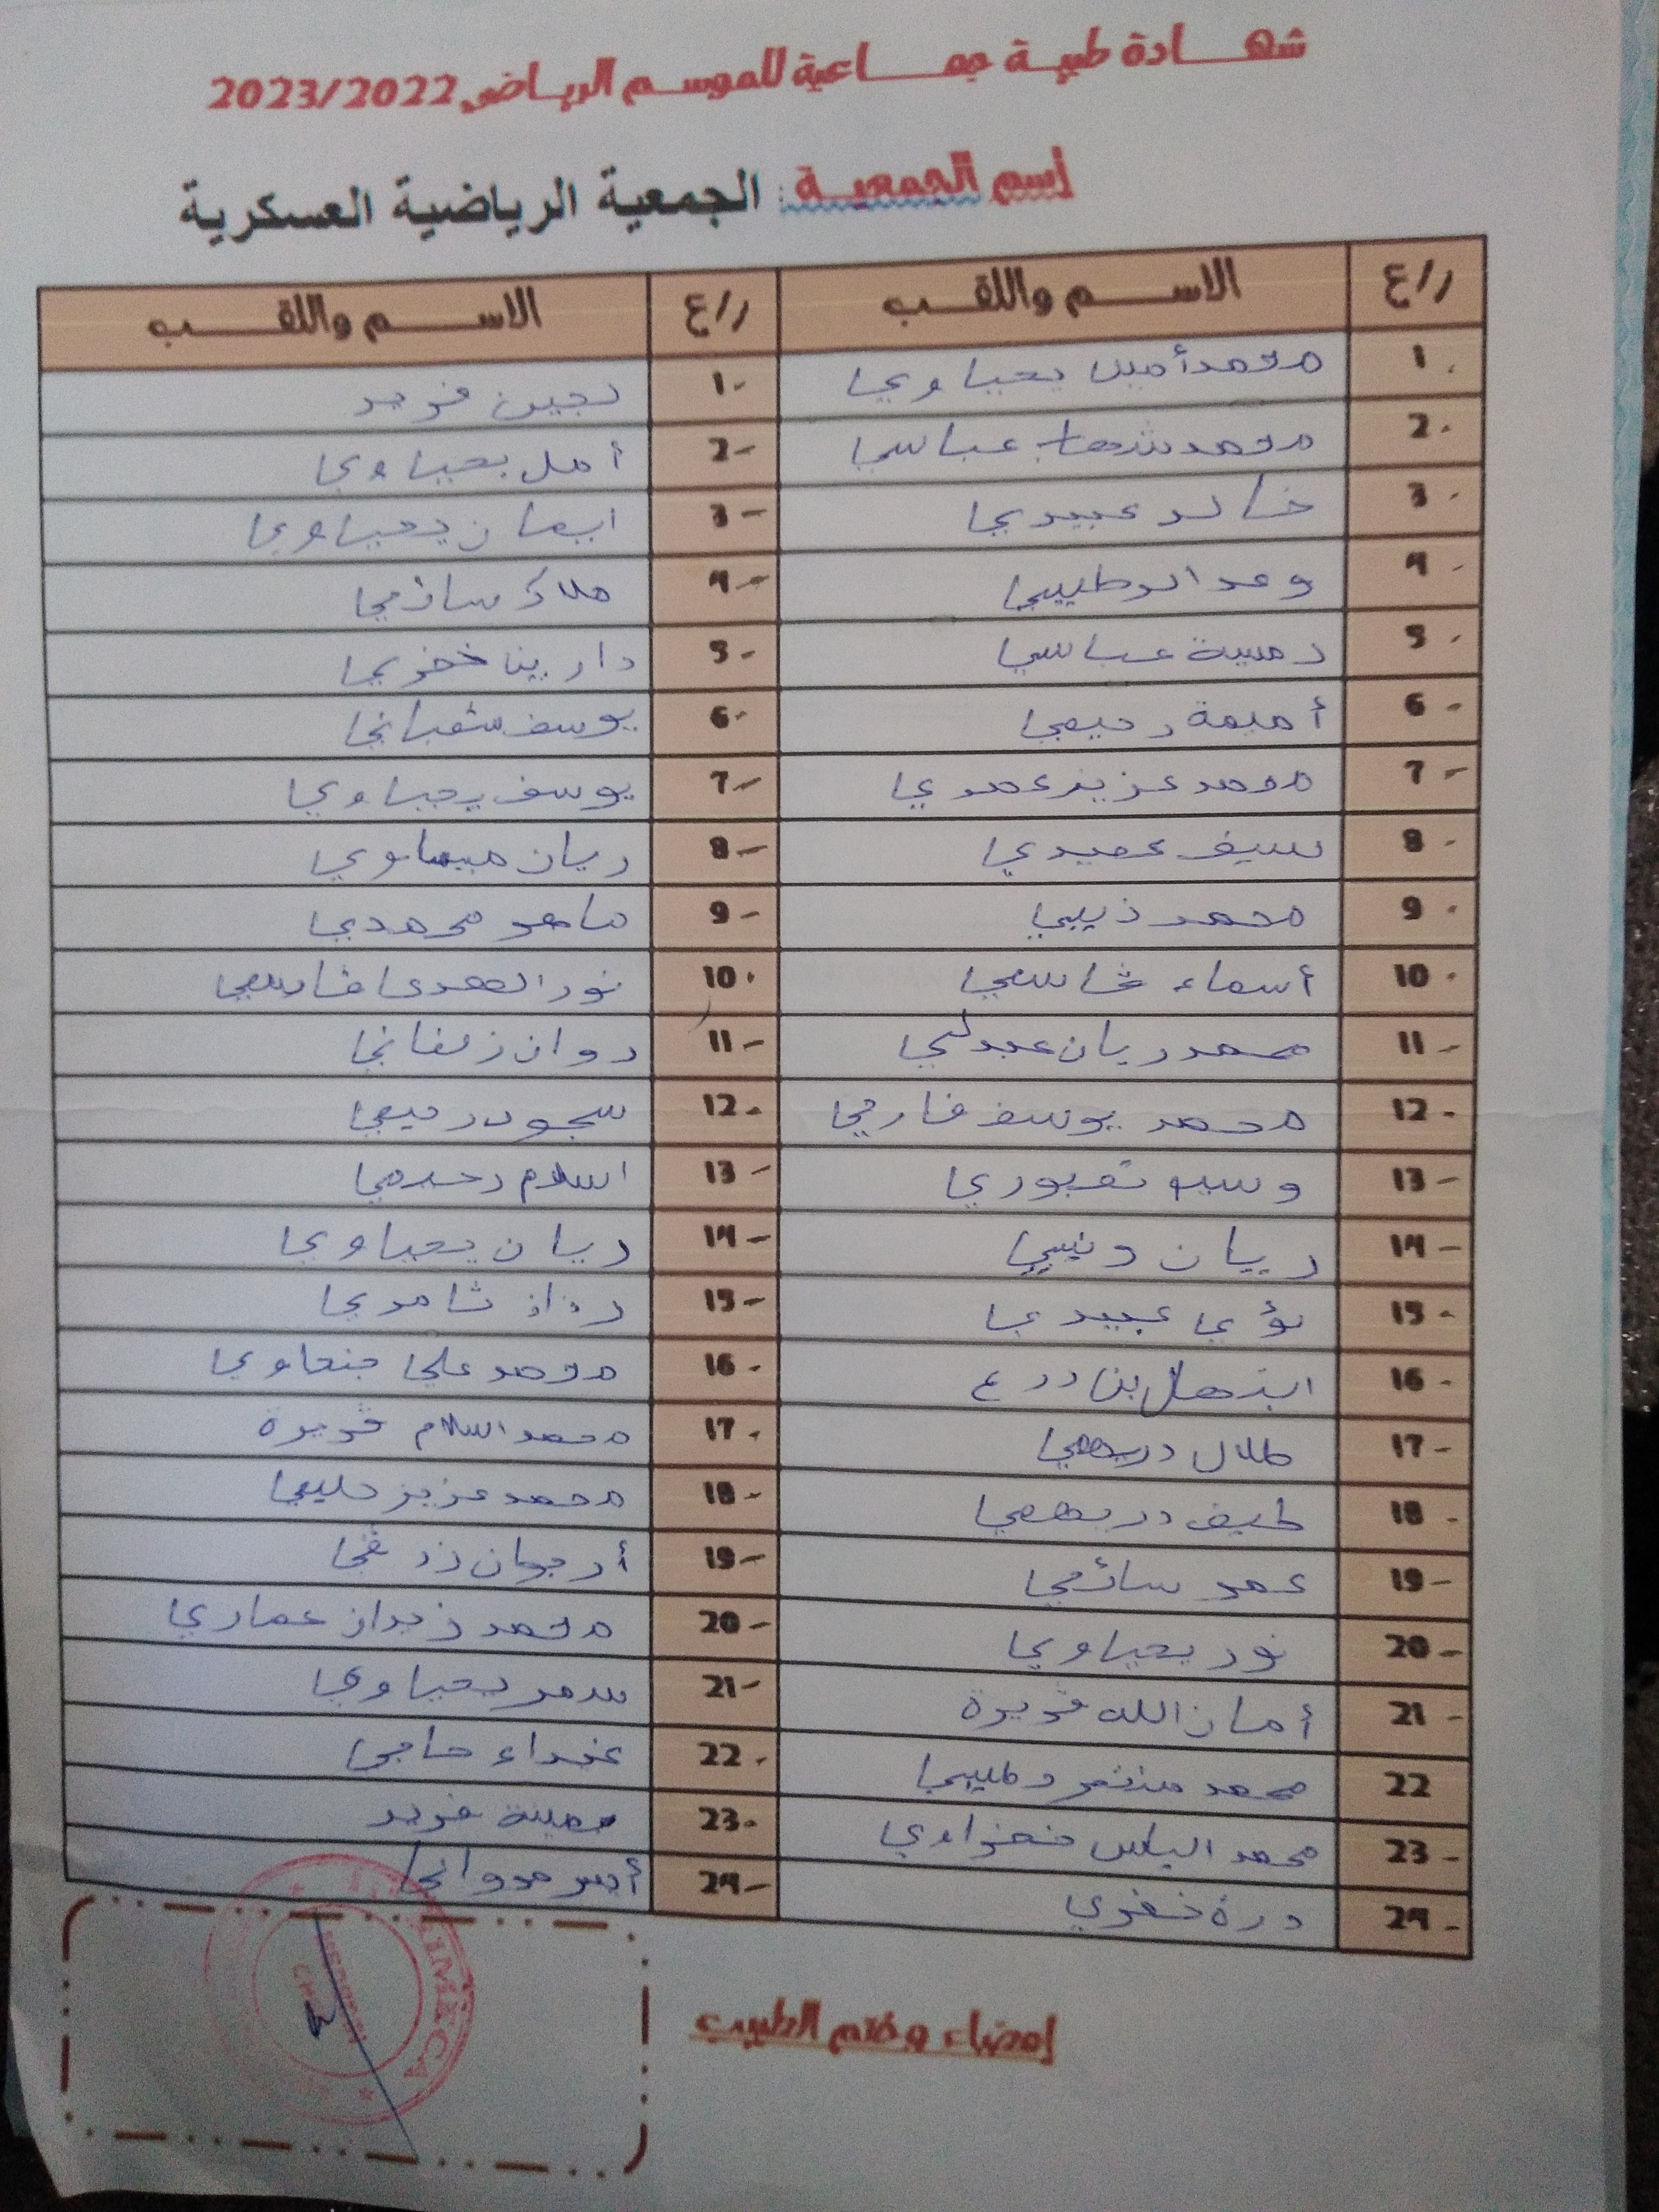 شهادة طبية جماعية للموسم الرياضي 2023/2022
إسم الجمعية : الجمعية الرياضية العسكرية
ر/ع الاسم واللقب ر/ع الاسم واللقب
1. محمد أمين يحياوي 1- لجين فريد
2. محمد شهاب عباسي 2- أمل يحياوي
3. خالد عبيدي 3- ايمان يحياوي
4. وعد الرطيبي 4- ملاك سائمي
5. دمسة عباسي 5- دارين خضري
6- أميمة رحيمي 6- يوسف شعباني
7- محمد عزيز عمري 7- يوسف يحياوي
8. سيف عميدي 8- ريان ميساوي
9. محمد ذيبي 9- ماهر محمدي
10. أسماء قاسمي 10. نور الهدى قاسمي
11- محمد ريان عبدلي 11- روان زلفاني
12. محمد يوسف فارحي 12. سجود رحيمي
13- وسيم تعبوري 13- اسلام رحيمي
14- ريان ونيسي 14- ريان يحياوي
15. لؤي عبيدي 15- رزان ثامري
16. ابتهال بن درع 16. محمد علي جنحاوي
17- طلال دريهمي 17. محمد اسلام قويرة
18. طيف دريهمي 18- محمد عزيز حليمي
19- عمر سائمي 19- أرجوان زرقي
20- نور يحياوي 20- محمد نزار عماري
21- أمان الله قويرة 21- سمر يحياوي
22 محمد منتصر وطيبي 22. غيداء حاجي
23- محمد الياس نفزاوي 23. يمينة فريد
24- درة خضري 24- أيسر مرواني
إمضاء وختم الطبيب